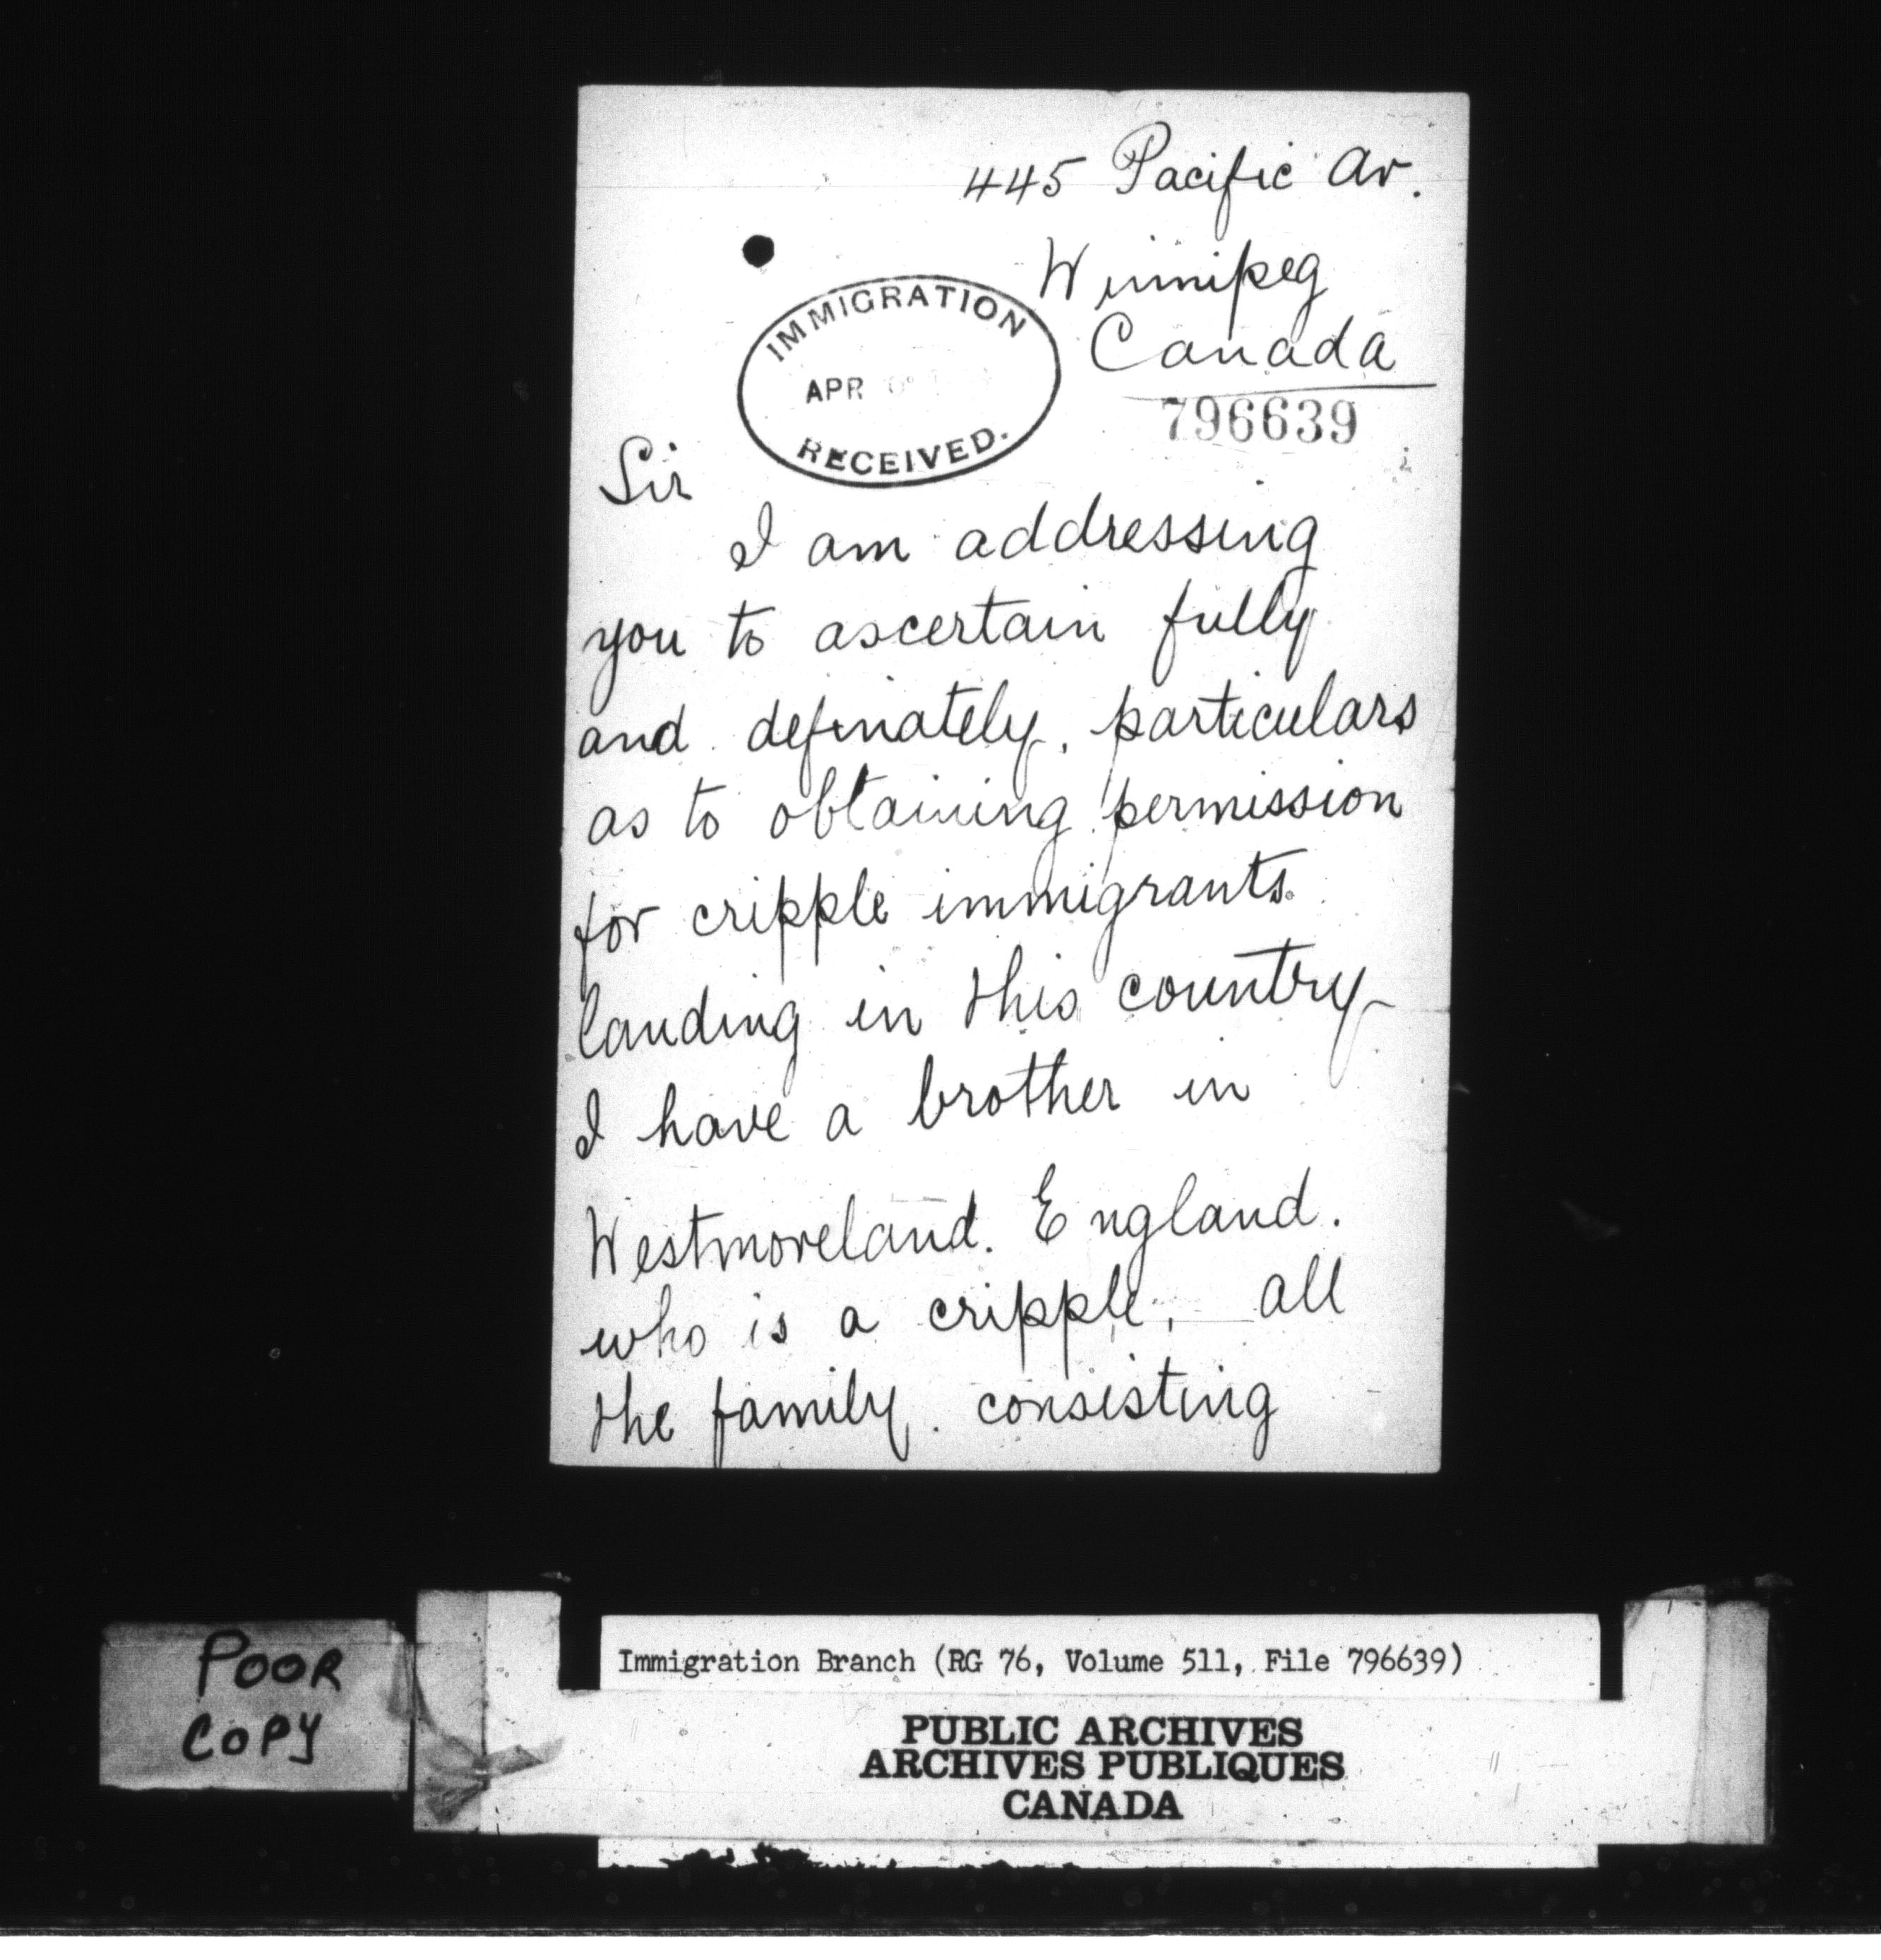 445 Pacific Av.
Winnipeg
Canada
IMMIGRATION
APR
RECEIVED.
796639
Sir
I am addressing
you to ascertain fully
and definately, particulars
as to obtaining permission
for cripple immigrants.
landing in this country
I have a brother in
Westmoreland. England.
who is a cripple, all
the family. consisting
POOR
COPY
Immigration Branch (RG 76, Volume 511, File 796639)
PUBLIC ARCHIVES
ARCHIVES PUBLIQUES
CANADA